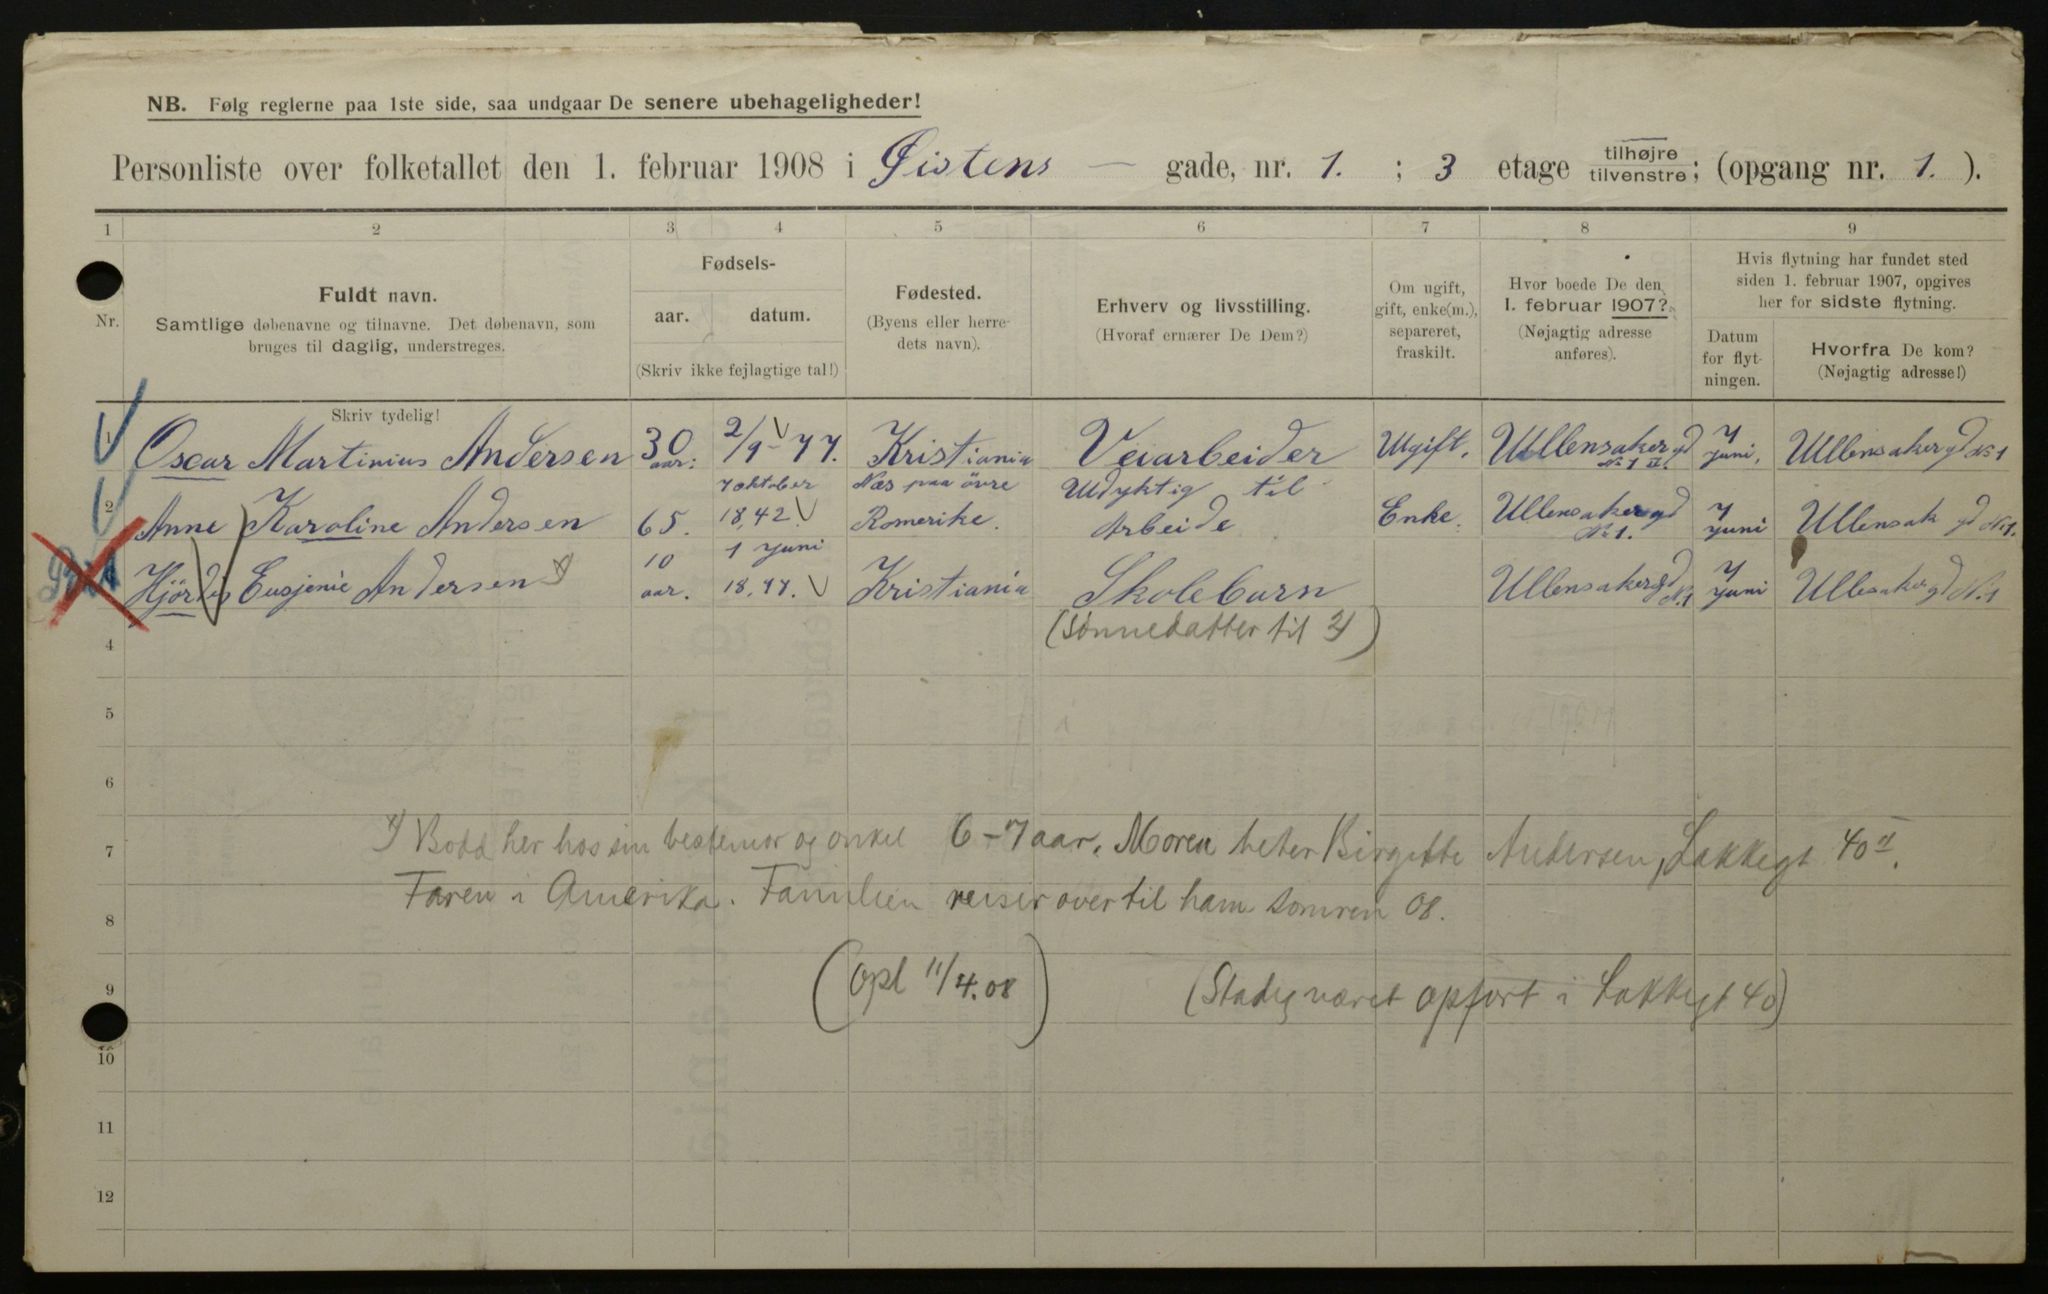 NB. Følg reglerne paa 1ste side, saa undgaar De senere ubehageligheder!
Personliste over folketallet den 1. februar 1908 i Øistens — gade, nr. 1. ; 3 etage tilhøjre tilvenstre; (opgang nr. 1. ).
1 2 3 4 5 6 7 8 9
Nr.
Fuldt navn.
Samtlige døbenavne og tilnavne. Det døbenavn, som
bruges til daglig, understreges.
Skriv tydelig!
Fødsels-
aar. datum.
(Skriv ikke fejlagtige tal!)
Fødested.
(Byens eller herre-
dets navn).
Erhverv og livsstilling.
(Hvoraf ernærer De Dem?)
Om ugift,
gift, enke(m.),
separeret,
fraskilt.
Hvor boede De den
1. februar 1907?
(Nøjagtig adresse
anføres).
Hvis flytning har fundet sted
siden 1. februar 1907, opgives
her for sidste flytning.
Datum
for flyt-
ningen.
Hvorfra De kom?
(Nøjagtig adresse!)
1 Oscar Martinius Andersen 30 aar. 2/9-77. Kristiania Veiarbeider Ugift. Ullensakergd No 1 II. 7 juni. Ullensakergd No 1
2 Anne Karoline Andersen 65. 7 oktober 18,42. Næs paa övre Romerike. Udyktig til Arbeide Enke. Ullensakergd No 1. 7 juni Ullensak gd No 1.
Hjördis Eusjenie Andersen 10 aar. 1 juni 18,97. Kristiania Skolebarn Ullensakergd No 1 7 juni Ullesakergd No 1
(Sønnedatter til 2)
4
5
6
7
x) Bodd her hos sin bestemor og onkel 6-7 aar. Moren heter Birgitte Andersen, Lakkegt 40 II.
Faren i Amerika. Familien reiser over til ham somren 08.
8
9
(opl 11/4.08) (Stadig været opført i Lakkegt 40)
10
11
12